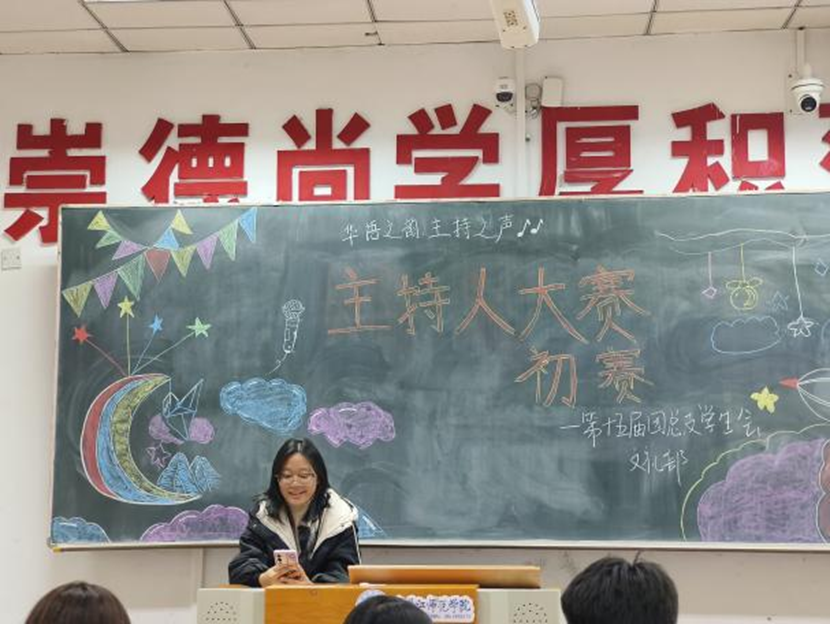 崇德尚学厚积
华语之韵 主持之声
主持人大赛
初赛
一第十五届团总支学生会
文礼部
江师范学院